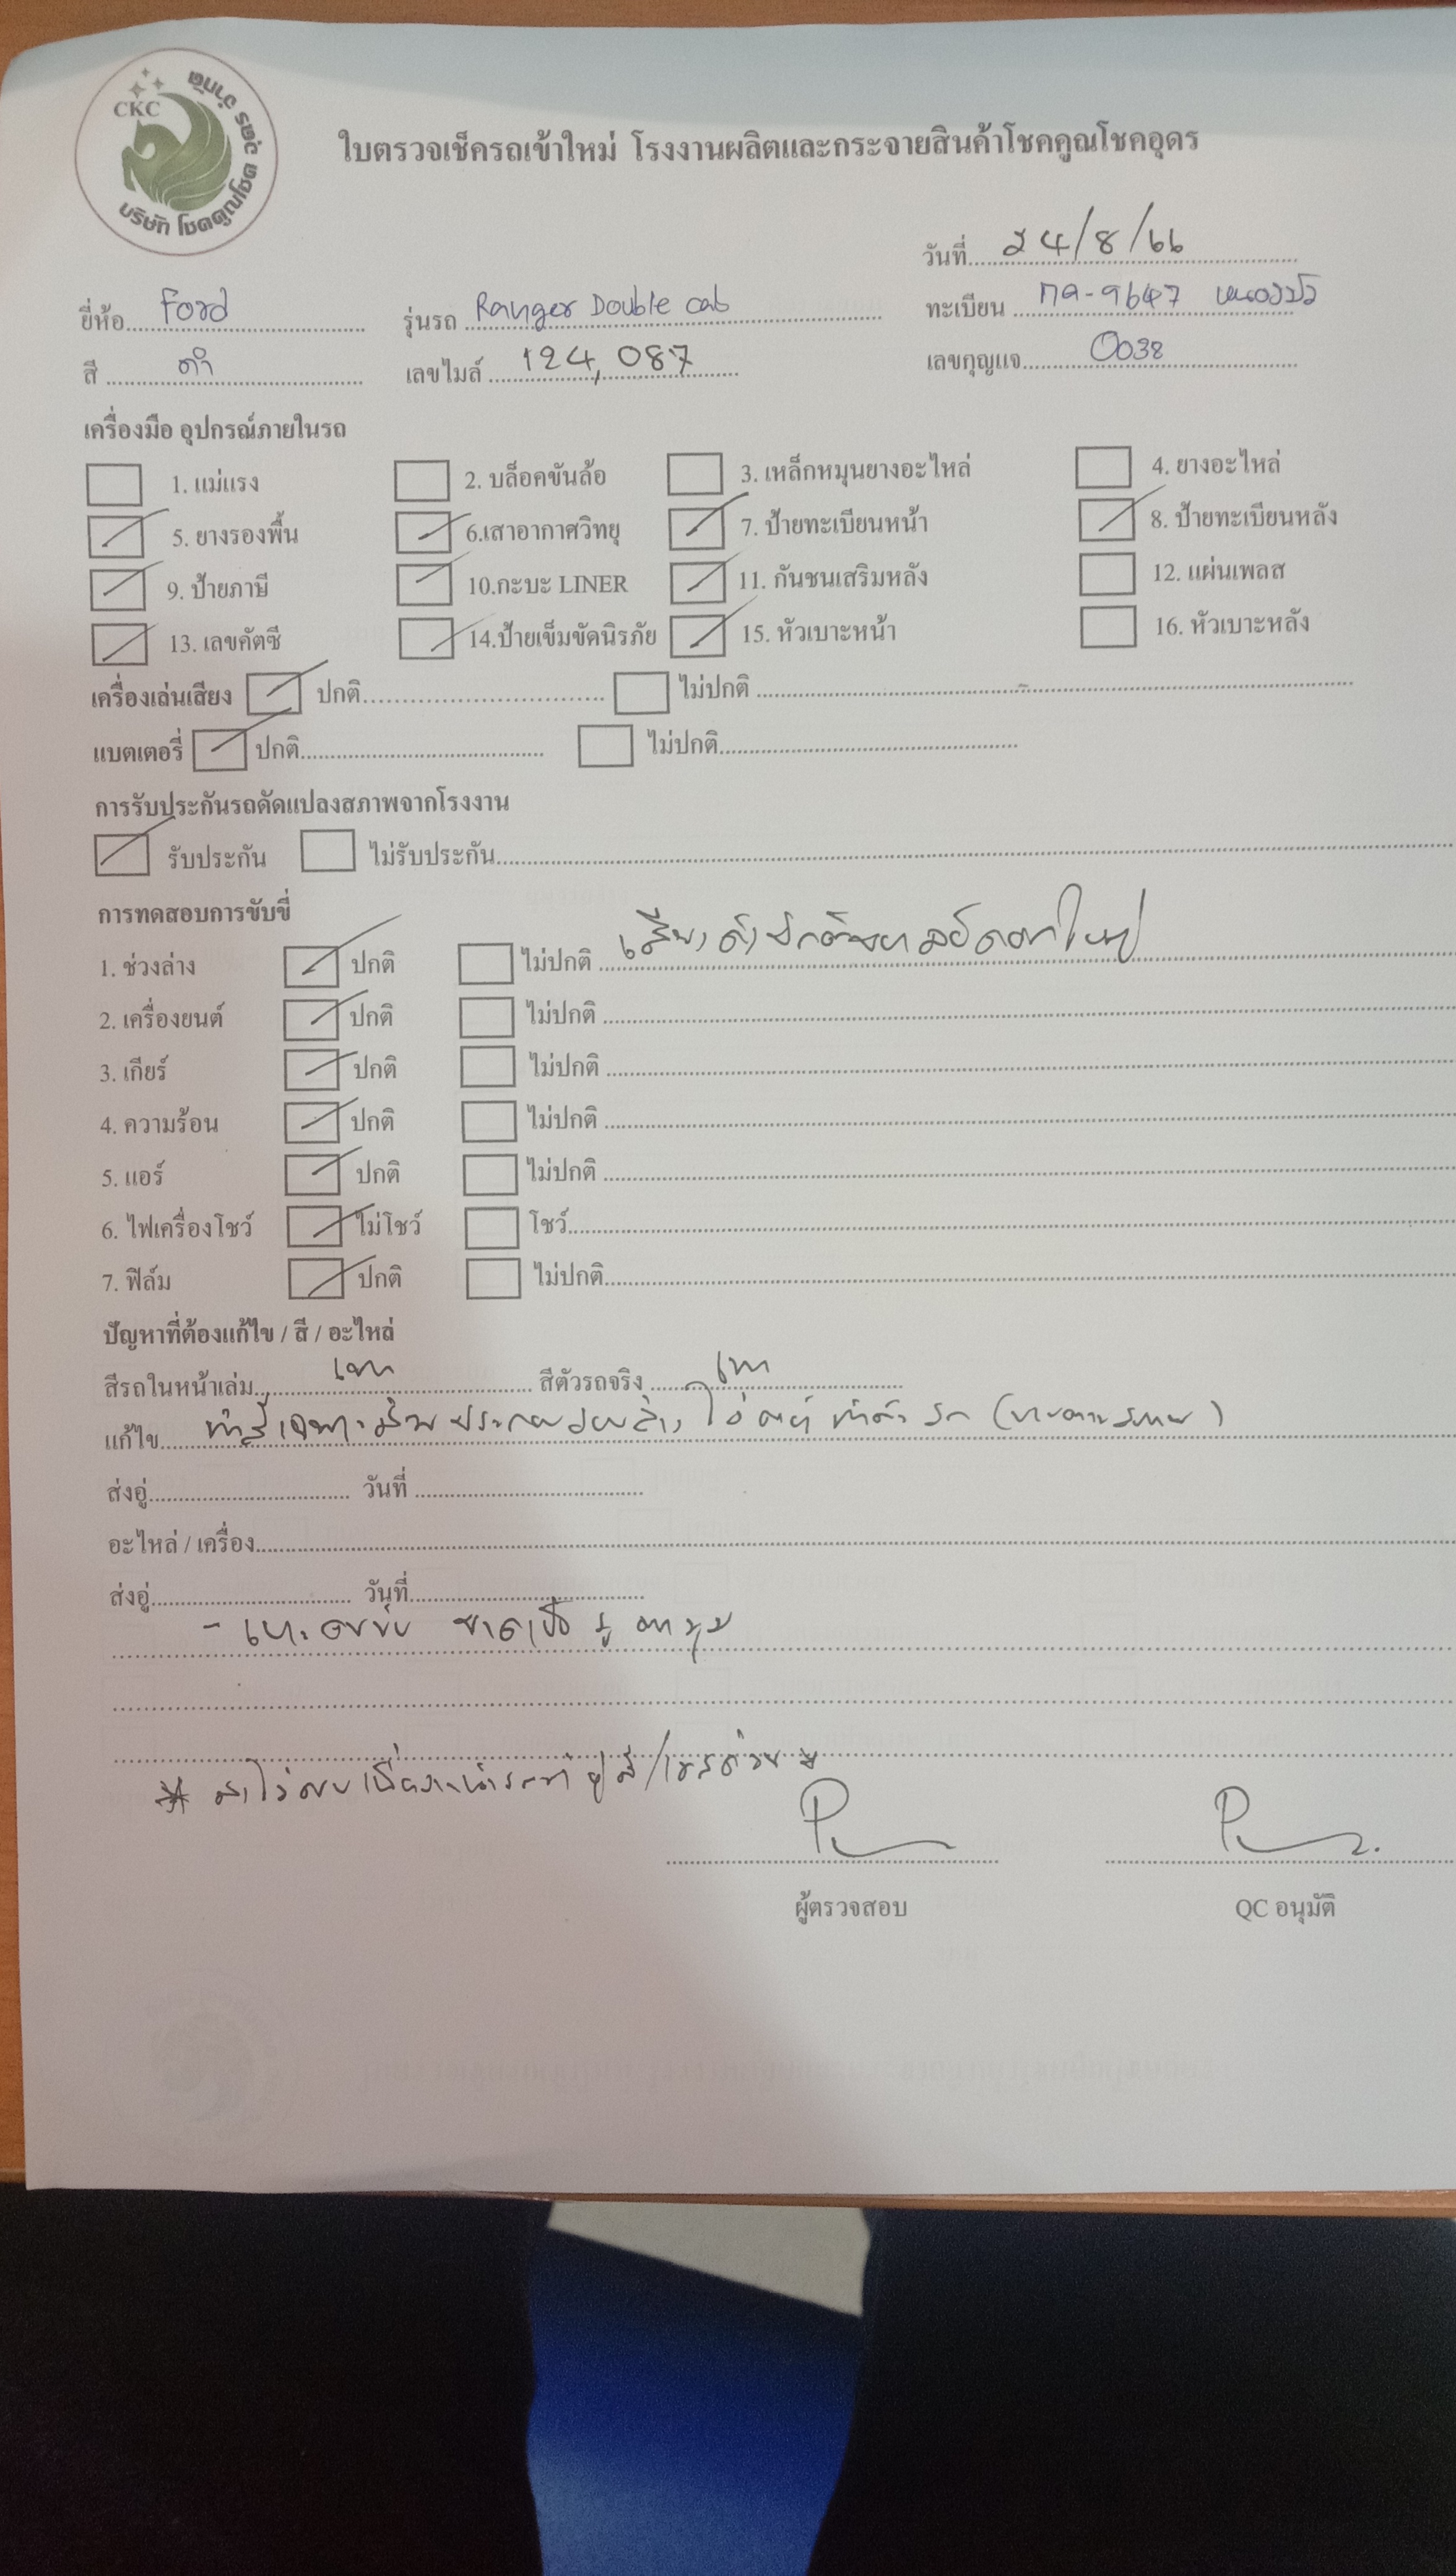 CKC
บริษัท โชคคูณโชค อุดร จำกัด
ใบตรวจเช็ครถเข้าใหม่ โรงงานผลิตและกระจายสินค้าโชคคูณโชคอุดร
วันที่ 24/8/66
ยี่ห้อ Ford รุ่นรถ Ranger Double cab ทะเบียน
สี ดำ เลขไมล์ 124,087 เลขกุญแจ 0038
เครื่องมือ อุปกรณ์ภายในรถ
1. แม่แรง 2. บล็อคขันล้อ 3. เหล็กหมุนยางอะไหล่ 4. ยางอะไหล่
5. ยางรองพื้น 6.เสาอากาศวิทยุ 7. ป้ายทะเบียนหน้า 8. ป้ายทะเบียนหลัง
9. ป้ายภาษี 10.กะบะ LINER 11. กันชนเสริมหลัง 12. แผ่นเพลส
13. เลขคัตซี 14.ป้ายเข็มขัดนิรภัย 15. หัวเบาะหน้า 16. หัวเบาะหลัง
เครื่องเล่นเสียง ปกติ ไม่ปกติ
แบตเตอรี่ ปกติ ไม่ปกติ
การรับประกันรถดัดแปลงสภาพจากโรงงาน
รับประกัน ไม่รับประกัน
การทดสอบการขับขี่
1. ช่วงล่าง ปกติ ไม่ปกติ
2. เครื่องยนต์ ปกติ ไม่ปกติ
3. เกียร์ ปกติ ไม่ปกติ
4. ความร้อน ปกติ ไม่ปกติ
5. แอร์ ปกติ ไม่ปกติ
6. ไฟเครื่องโชว์ ไม่โชว์ โชว์
7. ฟิล์ม ปกติ ไม่ปกติ
ปัญหาที่ต้องแก้ไข / สี / อะไหล่
สีรถในหน้าเล่ม เทา สีตัวรถจริง เทา
แก้ไข
ส่งอู่ วันที่
อะไหล่ / เครื่อง
ส่งอู่ วันที่
ผู้ตรวจสอบ QC อนุมัติ